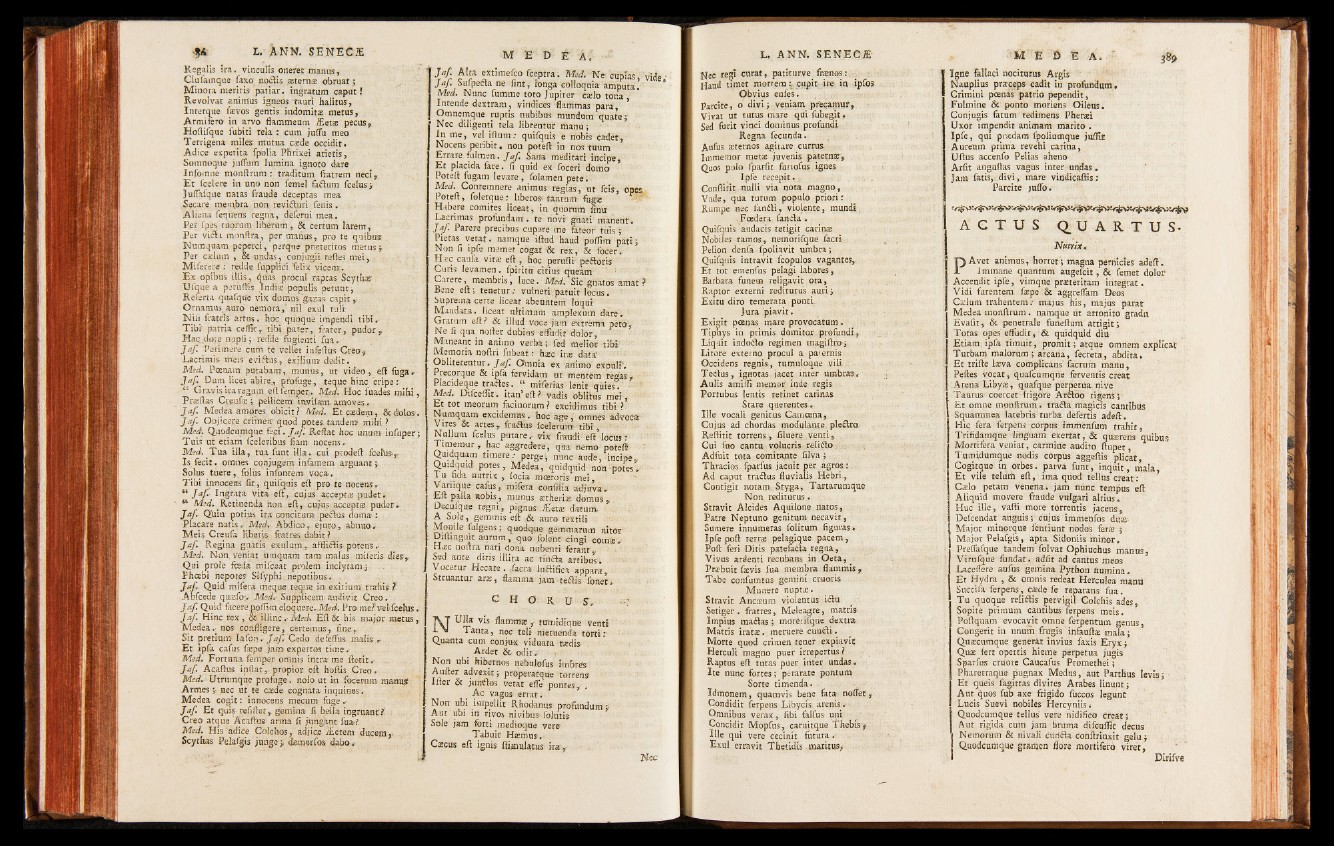 L. ANN. SENECÆ
Regalis ira. vinculis oneret manus,
Clusamque saxo noctis æternæ obruat;
Minora meritis patiar. ingratum caput!
Revolvat animus igneos tauri halitus,
Interque sævos gentis indomitæ metus,
Armifero in arvo flammeum Æetæ pecus,
Hostisque subiti tela: cum jussu meo
Terrigena miles mutua cæde occidit.
Adice expetita spolia Phrixei arietis,
Somnoque jussum lumina ignoto dare
Insomne monstrum: traditum fratrem neci,
Et scelere in uno non semel factum scelus;
Jussasque natas fraude deceptas mea
Secare membra non revicturi senis.
Aliena sequens regna, deserui mea.
Per spes tuorum liberum, & certum larem,
Per victa monstra, per manus, pro te quibus
Numquam peperci, perque præteritos metus;
Per cælum, & undas, conjugii testes mei,
Miserere: redde supplici felix vicem.
Ex opibus illis, quas procul raptas Scythæ
Usque a perustis Indiæ populis petunt;
Referta quasque vix domus gazas capit,
Ornamus auro nemora, nil exul tuli
Nisi fratris artus. hoc quoque impendi tibi.
Tibi patria cessit, tibi pater, frater, pudor,
Hac dote nupsi; redde fugienti sua.
Jas. Perimere cum te vellet infestus Creo,
Lacrimis meis evictus, exilium dedit.
Med. Pœnam putabam, munus, ut video, est fuga.
Jas. Dum licet abire, profuge, teque hinc eripe:
" Gravis ira regum est semper. Med. Hoc suades mihi,
Præstas Creusæ; pellicem invisam amoves.
Jas. Medea amores obicit? Med. Et cædem, & dolos.
Jas. Obijcere crimen quod potes tandem mihi?
Med. Quodcumque feci. Jas. Restat hoc unum insuper;
Tuis ut etiam sceleribus fiam nocens.
Med. Tua illa, tua sunt illa. cui prodest scelus,
Is fecit. omnes conjugem infamem arguant;
Solus tuere, solus insontem voca.
Tibi innocens sit, quisquis est pro te nocens.
" Jas. Ingrata vita est, cujus acceptæ pudet.
" Med. Retinenda non est, cujus acceptæ pudet.
Jas. Quin potius ira concitum pectus doma:
Placare natis. Med. Abdico, ejuro, abnuo.
Meis Creusa liberis fratres dabit?
Jas. Regina natis exulum, afflictis potens.
Med. Non veniat umquam tam malus miseris dies,
Qui prole fœda misceat prolem inclytam;
Phœbi nepotes Sisyphi nepotibus.
Jas. Quid misera meque teque in exitium trahis?
Abscede quæso. Med. Supplicem audivit Creo.
Jas. Quid facere possim eloquere. Med. Pro me? vel scelus.
Jas. Hinc rex, & illinc. Med. Est & his major metus,
Medea. nos confligere, certemus, sine,
Sit pretium Iason. Jas. Cedo defessus malis,
Et ipsa casus sæpe jam expertos time.
Med. Fortuna semper omnis intra me stetit.
Jas. Acastus instat, propior est hostis Creo.
Med. Utrumque profuge. nolo ut in socerum manus
Armes; nec ut te cæde cognata inquines.
Medea cogit: innocens mecum fuge.
Jas. Et quis resistet, gemina si bella ingruant?
Creo atque Acastus arma si jungant sua?
Med. His adice Colchos, adjice Æetem ducem,
Scythas Pelasgis junge; demersos dabo.
MEDEA.
Jas. Alta extimesco sceptra. Med. Ne cupias, vide.
Jas. Suspecta ne sint, longa colloquia amputa.
Med. Nunc summe toto Jupiter cælo tona,
Intende dextram, vindices flammas para,
Omnemque ruptis nubibus mundum quate;
Nec diligenti tela librentur manu;
In me, vel istum: quisquis e nobis cadet,
Nocens peribit. non potest in nos tuum
Errare fulmen. Jas. Sana meditari incipe,
Et placida fare. si quid ex soceri domo
Potest fugam levare, solamen pete.
Med. Contemnere animus regias, ut scis, opes
Potest, soletque: liberos tantum fugæ
Habere comites liceat, in quorum sinu
Lacrimas profundam. te novi gnati manent.
Jas. Parere precibus cupere me fateor tuis;
Pietas vetat. namque istud haud possim pati;
Non si ipse memet cogat & rex, & socer.
Hæc causa vitæ est, hoc perusti pectoris
Curis levamen. spiritu citius queam
Carere, membris, luce. Med. Sic gnatos amat?
Bene est; tenetur: vulneri patuit locus.
Suprema certe liceat abeuntem loqui
Mandata. liceat ultimum amplexum dare.
Gratum est? & illud voce jam extrema peto,
Ne si qua noster dubius effudit dolor,
Maneant in animo verba; sed melior tibi
Memoria nostri subeat: hæc iræ data
Obliterentur. Jas. Omnia ex animo expuli.
Precorque & ipsa fervidam ut mentem regas,
Placideque tractes. " miserias lenit quies.
Med. Discessit. itan' est? vadis oblitus mei,
Et tot meorum facinorum? excidimus tibi?
Numquam excidemus. hoc age, omnes advoca
Vires & artes, fructus scelerum tibi,
Nullum scelus putare. vix fraudi est locus:
Timemur, hac aggredere, qua nemo potest
Quidquam timere: perge, nunc aude, incipe,
Quidquid potes, Medea, quidquid non potes.
Tu fida nutrix, socia mœroris mei,
Variique casus, misera consilia adjuva.
Est palla nobis, munus ætheriæ domus,
Decusque regni, pignus Æetæ datum
A Sole, gemmis est & auro textili
Monile fulgens; quodque gemmarum nitor
Distinguit aurum, quo solent cingi comæ.
Hæc nostra nati dona nubenti ferant,
Sed ante diris illita ac tincta artibus.
Vocetur Hecate. sacra luctifica appara,
Struantur aræ, flamma jam tectis sonet.
CHORUS.
NUlla vis flammæ, tumidique venti
Tanta, nec teli metuenda torti:
Quanta cum conjux viduata tædis
Ardet & odit.
Non ubi hibernos nebulosus imbres
Auster advexit; properatque torrens
Ister & junctos vetat esse pontes,
Ac vagus errat.
Non ubi impellit Rhodanus profundum;
Aut ubi in rivos nivibus solutis
Sole jam forti medioque vere
Tabuit Hæmus.
Cæcus est ignis stimulatus ira,
Nec
L. ANN. SENECÆ
Nec regi curat, patiturve frænos:
Haud timet mortem: cupit ire in ipsos
Obvius enses.
Parcite, o divi; veniam precamur,
Vivat ut tutus mare qui subegit.
Sed furit vinci dominus profundi
Regna secunda.
Ausus æternos agitare currus
Immemor metæ juvenis paternæ,
Quos polo sparsit furiosus ignes
Ipse recepit.
Constitit nulli via nota magno,
Vade, qua tutum populo priori:
Rumpe nec sancti, violente, mundi
Fœdera sancta.
Quisquis audacis tetigit carinæ
Nobiles ramos, nemorisque sacri
Pelion densa spoliavit umbra;
Quisquis intravit scopulos vagantes,
Et tot emensus pelagi labores,
Barbara funem religavit ora,
Raptor externi rediturus auri;
Exitu diro temerata ponti
Jura piavit.
Exigit pœnas mare provocatum.
Tiphys in primis domitor profundi,
Liquit indocto regimen magistro;
Litore externo procul a paternis
Occidens regnis, tumuloque vili
Tectus, ignotas jacet inter umbras.
Aulis amissi memor inde regis
Portubus lentis retinet carinas
Stare querentes.
Ille vocali genitus Camœna,
Cujus ad chordas modulante plectro
Restitit torrens, siluere venti,
Cui suo cantu volucris relicto
Adfuit tota comitante silva;
Thracios sparsus jacuit per agros:
Ad caput tractus fluvialis Hebri,
Contigit notam Styga, Tartarumque
Non rediturus.
Stravit Alcides Aquilone natos,
Patre Neptuno genitum necavit,
Sumere innumeras solitum figuras.
Ipse post terræ pelagique pacem,
Post feri Ditis patefacta regna,
Vivus ardenti recubans in Oeta,
Præbuit sævis sua membra flammis,
Tabe consumtus gemini cruoris
Munere nuptæ.
Stravit Ancæum violentus ictu
Setiger. fratres, Meleagre, matris
Impius mactas; morerisque dextra
Matris iratæ. meruere cuncti.
Morte quod crimen tener expiavit
Herculi magno puer irrepertus?
Raptus est tutas puer inter undas.
Ite nunc fortes; perarate pontum
Sorte timenda.
Idmonem, quamvis bene fata nosset,
Condidit serpens Libycis arenis.
Omnibus verax, sibi falsus uni
Concidit Mopsus, caruitque Thebis,
Ille qui vere cecinit futura.
Exul erravit Thetidis maritus,
MEDEA. 389
Igne fallaci nociturus Argis
Nauplius præceps cadet in profundum,
Crimini pœnas patrio pependit,
Fulmine & ponto moriens Oileus.
Conjugis fatum redimens Pheræi
Uxor impendit animam marito.
Ipse, qui prædam spoliumque jussit
Aureum prima revehi carina,
Ustus accenso Pelias aheno
Arsit angustas vagus inter undas.
Jam satis, divi, mare vindicastis:
Parcite jusso.
ACTUS QUARTUS.
Nutrix.
PAvet animus, horret; magna pernicies adest.
Immane quantum augescit, & semet dolor
Accendit ipse, vimque præteritam integrat.
Vidi furentem sæpe & aggressam Deos
Cælum trahentem: majus his, majus parat
Medea monstrum. namque ut attonito gradu
Evasit, & penetrale funestum attigit;
Totas opes effudit, & quidquid diu
Etiam ipsa timuit, promit; atque omnem explicat
Turbam malorum; arcana, secreta, abdita.
Et triste læva complicans factum manu,
Pestes vocat, quascumque ferventis creat
Arena Libyæ, quasque perpetua nive
Taurus coercet frigore Arctoo rigens;
Et omne monstrum. tracta magicis cantibus
Squammea latebris turba desertis adest.
Hic fera serpens corpus immensum trahit,
Trifidamque linguam exertat, & quærens quibus
Mortifera veniat, carmine audito stupet,
Tumidumque nodis corpus aggestis plicat,
Cogitque in orbes. parva sunt, inquit, mala,
Et vile telum est, ima quod tellus creat:
Cælo petam venena. jam nunc tempus est
Aliquid movere fraude vulgari altius.
Huc ille, vasti more torrentis jacens,
Descendat anguis; cujus immensos duæ
Major minorque sentiunt nodos feræ;
Major Pelasgis, apta Sidoniis minor.
Pressasque tandem solvat Ophiuchus manus,
Virusque fundat. adsit ad cantus meos
Lacessere ausus gemina Python numina.
Et Hydra, & omnis redeat Herculea manu
Succisa serpens, cæde se reparans sua.
Tu quoque relictis pervigil Colchis ades,
Sopite primum cantibus serpens meis.
Postquam evocavit omne serpentum genus,
Congerit in unum frugis infaustæ mala;
Quæcumque generat invius saxis Eryx;
Quæ fert opertis hieme perpetua jugis
Sparsus cruore Caucasus Promethei;
Pharetraque pugnax Medus, aut Parthus levis;
Et queis sagittas divites Arabes linunt;
Aut quos sub axe frigido succos legunt
Lucis Suevi nobiles Hercyniis.
Quodcumque tellus vere nidifico creat;
Aut rigida cum jam bruma discussit decus
Nemorum & nivali cuncta constrinxit gelu;
Quodcumque gramen flore mortifero viret,
Dirisve